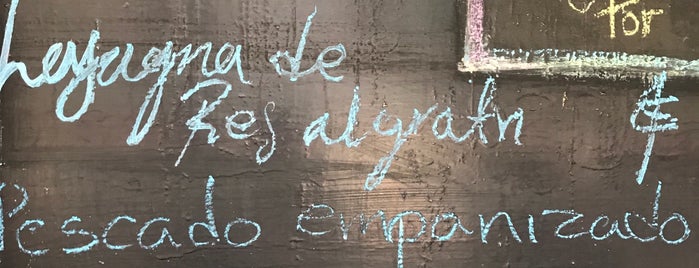 Por
Lesagna de
Res al gratn ¢
Pescado empanizado